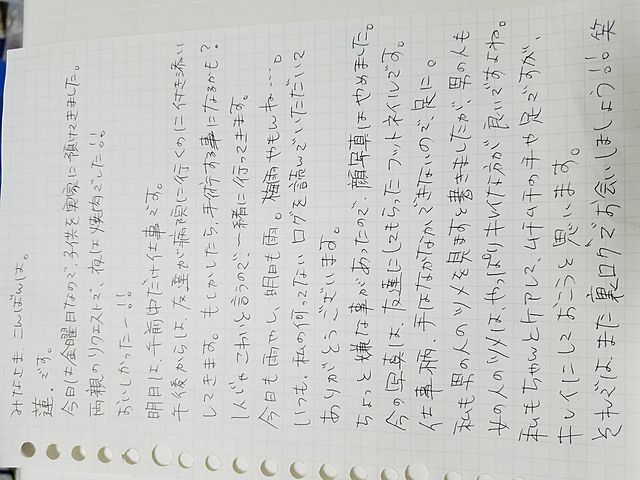 みなさま、こんばんは。
蓮。です。
今日は金曜日なので子供を実家に預けてきました。
両親のリクエストで、夜は焼肉でした!!
おいしかったー!!
明日は、午前中だけ仕事です。
午後からは、友達が病院に行くのに付き添い
してきます。もしかしたら、手術する事になるかも?
1人じゃこわいと言うので、一緒に行ってきます。
今日も雨やし、明日も雨。梅雨やもんね…。
いつも、私の何ってないログを読んでいただいて
ありがとうございます。
ちょっと嫌な事があったので、顔写真はやめました。
今の写真は、友達にしてもらったフットネイルです。
仕事柄、手はなかなかできないので、足に。
私も男の人のツメを見ますと書きましたが、男の人も
女の人のツメは、やっぱりキレイな方が良いですよね。
私もちゃんとケアして、4チ4チの手や足ですが、
キレイにしておこうと思います。
それでは、また裏ログでお会いしましょう!! 笑